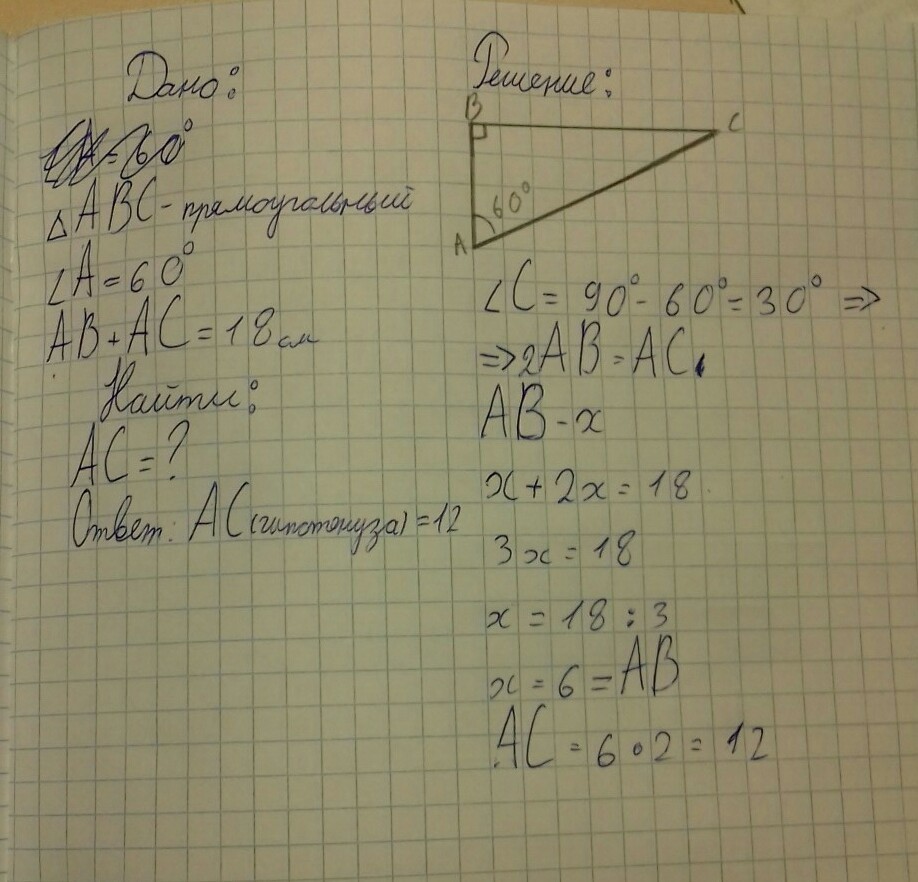 Дано:
△ABC - прямоугольный
∠A = 60°
AB + AC = 18 см
Найти:
AC = ?
Ответ: AC (гипотонуза) = 12
Решение:
B
C
60°
A
∠C = 90° - 60° = 30° =>
=> 2AB = AC.
AB - x
x + 2x = 18
3x = 18
x = 18 : 3
x = 6 = AB
AC = 6 • 2 = 12